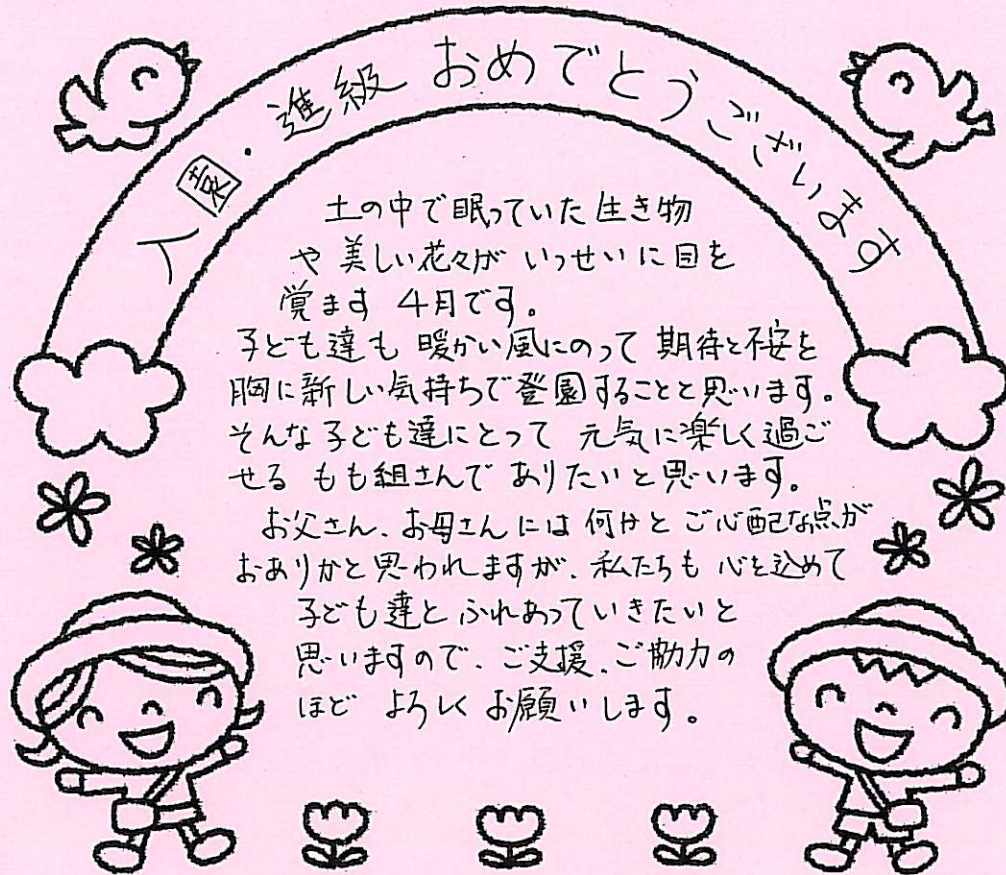 入園・進級 おめでとうございます
土の中で眠っていた生き物
や美しい花々が いっせいに目を
覚ます 4月です。
子ども達も 暖かい風にのって 期待と不安を
胸に新しい気持ちで登園することと思います。
そんな子ども達にとって 元気に楽しく過ご
せる もも組さんで ありたいと思います。
お父さん、お母さんには 何かと ご心配な点が
おありかと思われますが、私たちも 心を込めて
子ども達と ふれあっていきたいと
思いますので、ご支援、ご協力の
ほど よろしく お願いします。